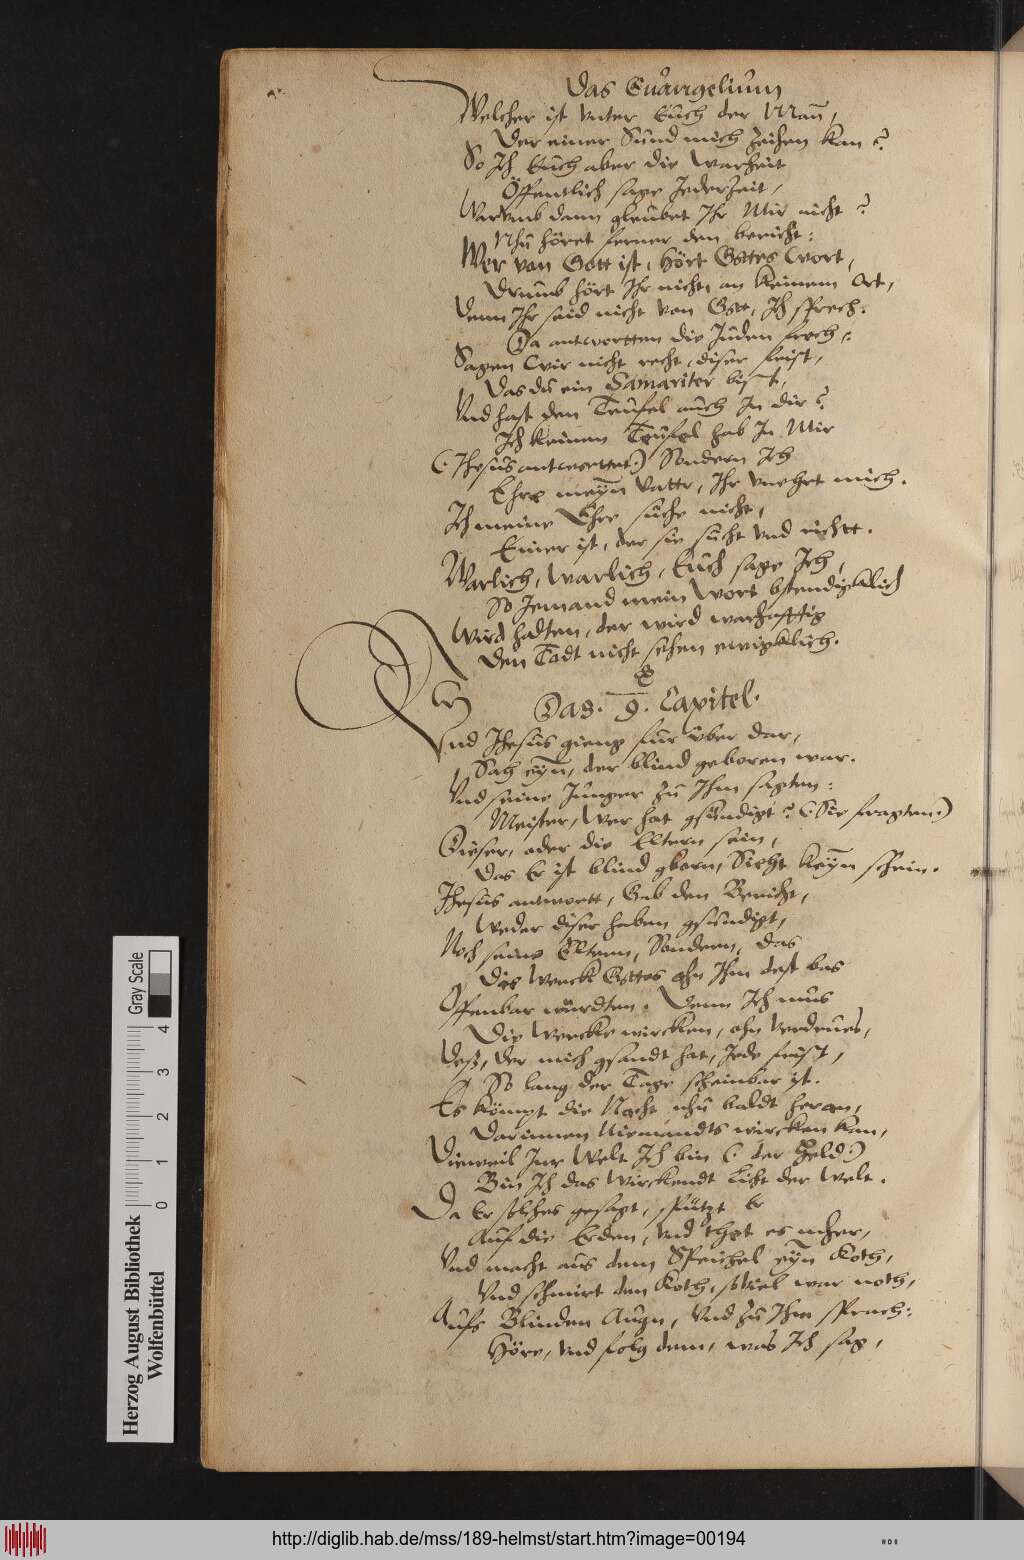 Das Euangelium
Welcher ist vnter Euch der Mañ,
Der einer Sünd mich zeihen kan?
So Ich Euch aber die warheit
Öffentlich sage Jederzeit,
Warumb dann gleubet Ihr Mir nicht?
Nhu höret ferner den bericht:
Wer von Gott ist, hört Gottes wort,
Drumb hört Ihr nicht, an keinem Ort,
Denn Ihr seid nicht von Gott, Ich sprech:
Da antwortten die Juden frech:
Sagen wir nicht recht, diser frist,
Das du ein Samariter bist,
Und hast den Teufel auch In dir?
Ich keinen Teufel hab In Mir
(: Jhesus antworttet:) Sondern Ich
Ehre meyn vattr, Ihr vnehrt mich.
Ich meine Ehre suche nicht,
Einer ist, der sie sucht vnd richtt.
Warlich, Warlich, Euch sage Ich,
So Jemand mein Wort bstendigklich
Wird halten, der wird warhafftig
Den Todt nicht sehen ewigklich.
Das. 9. Capitel.
Und Jhesus gieng für über dar,
Sah eyn, der blind geboren war.
Und seine Junger zu Ihm sagten:
Meister, Wer hat gsündigt? (: Sie fragten:)
Dieser, oder die Eltern sein,
Das Er ist blind gborn, Sieht keyn schein.
Jhesus antwortt, Gab den Bericht,
Weder diser haben gsundigt,
Noch seine Eltern, Sondern, das
Die Werck Gottes ahn Ihm dest bas
Offenbar würdten. Denn Ich mus
Die Wercke wircken, ohn verdrues,
Deß, der mich gsandt hat, Jede frist,
So lang der Tage scheinbar ist.
Es kömpt die Nacht nhu baldt heran,
Darinnen Niemandts wircken kan,
Dieweil Inn Welt Ich bin (: der Held:)
Bin Ich das Wirckendt licht der Welt.
Da Er solches gesagt, spützt Er
Auf die Erden, und thet es mher,
Und macht aus dem Speichel eyn Koth,
Und schmirt den Koth, soviel war noth,
Aufs Blinden Augn, Und zu Ihm sprach:
Höre, und folg dem, was Ich sag,
Herzog August Bibliothek
Wolfenbüttel
0 1 2 3 4
Gray Scale
http://diglib.hab.de/mss/189-helmst/start.htm?image=00194